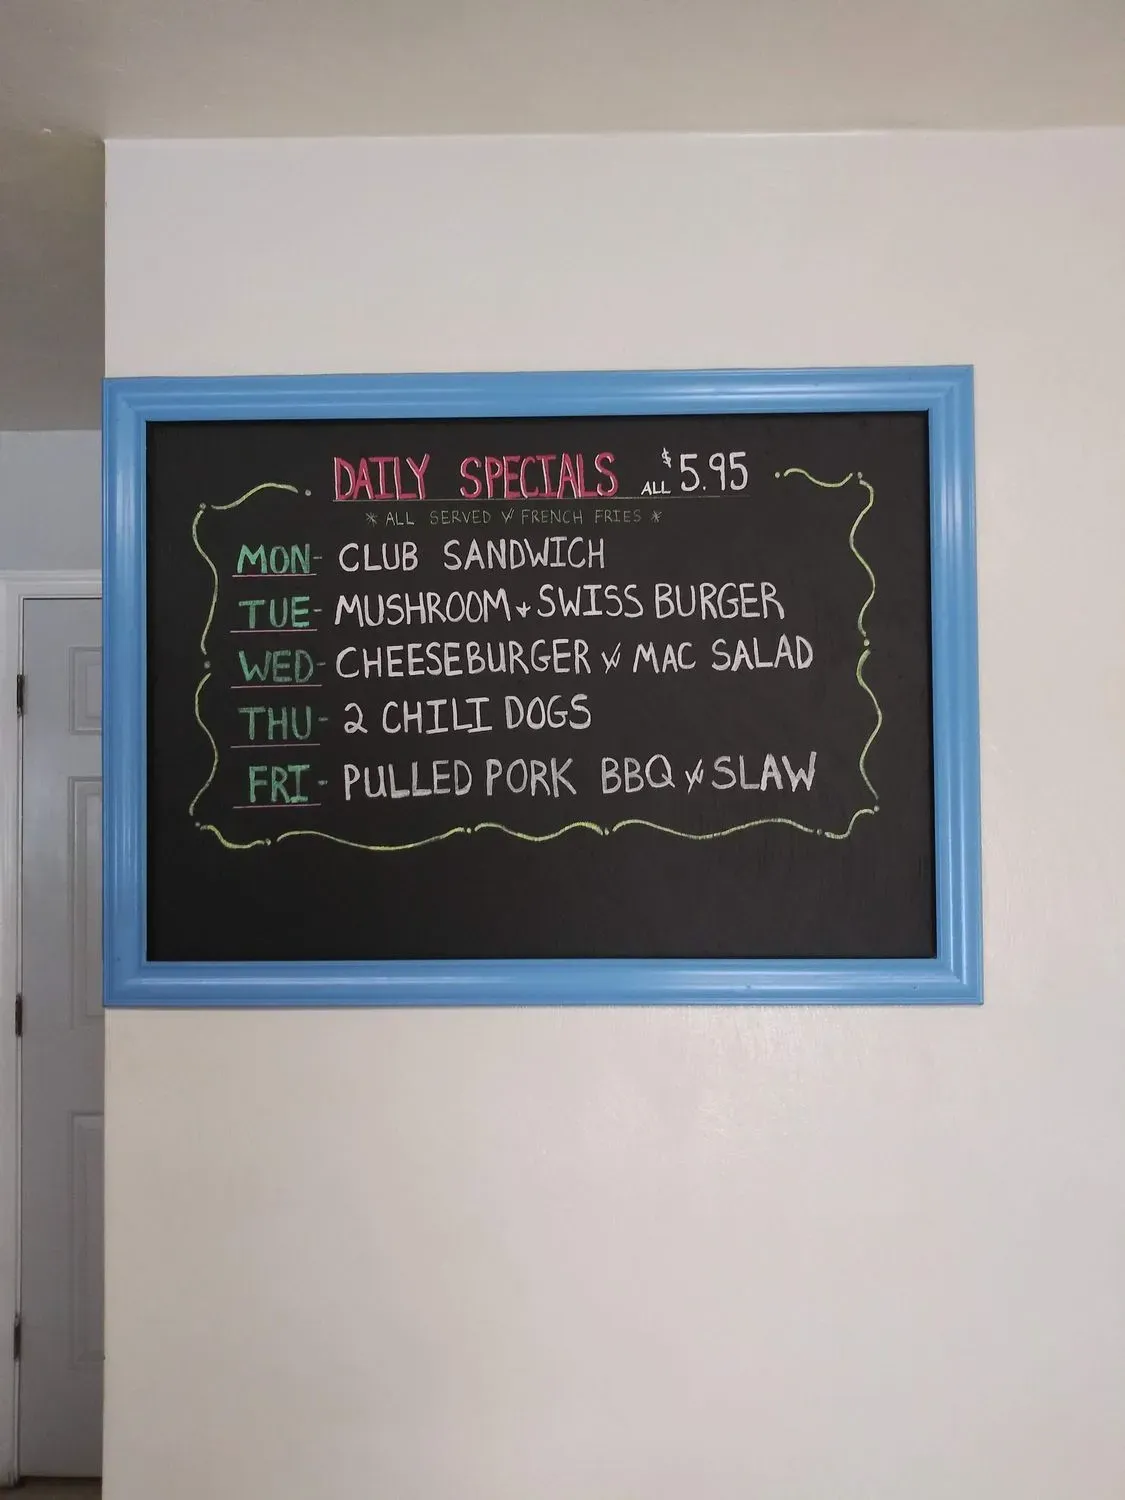 DAILY SPECIALS ALL $5.95
* ALL SERVED W/ FRENCH FRIES *
MON- CLUB SANDWICH
TUE- MUSHROOM + SWISS BURGER
WED- CHEESEBURGER W/ MAC SALAD
THU- 2 CHILI DOGS
FRI- PULLED PORK BBQ W/ SLAW